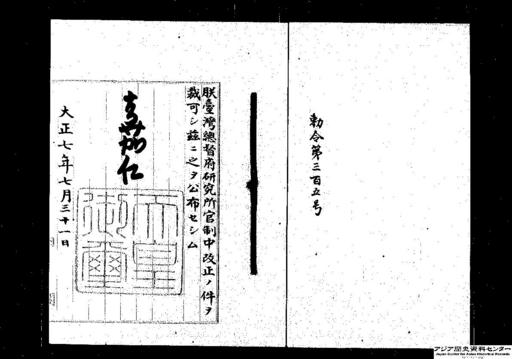 勅令第三百五号
朕臺灣總督府研究所官制中改正ノ件ヲ
裁可シ茲ニ之ヲ公布セシム
嘉仁
天皇
御璽
大正七年七月三十一日
アジア歴史資料センター
Japan Center for Asian Historical Records